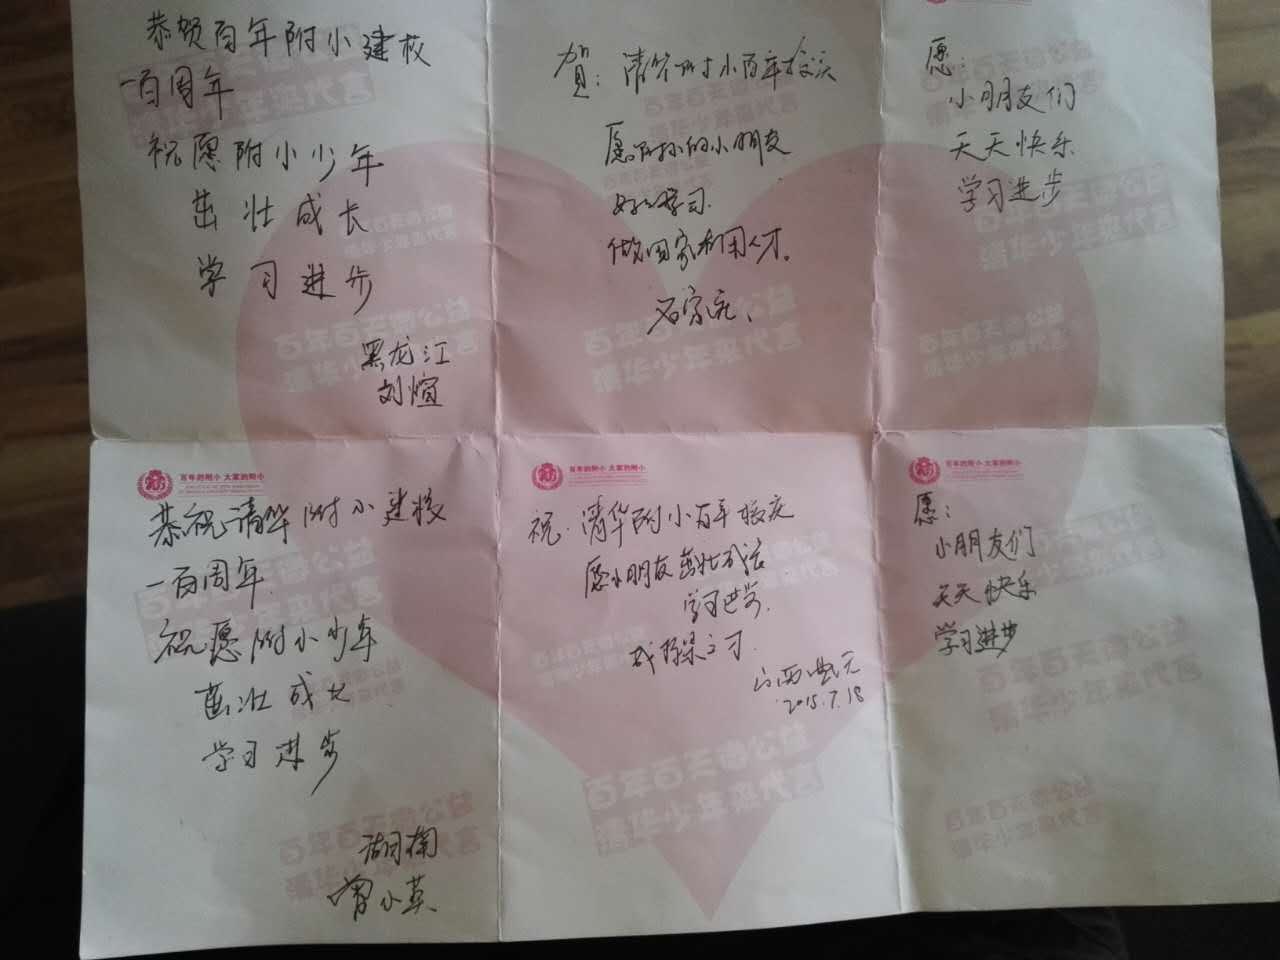 恭贺百年附小建校
一百周年
祝愿附小少年
茁壮成长
学习进步
黑龙江
刘煊
賀：清华附小百年校庆
愿附小的小朋友
好好学习
做国家有用人才。
愿：
小朋友们
天天快乐
学习进步
百年的附小 大家的附小
恭祝清华附小建校
一百周年.
祝愿附小少年
茁壮成长
学习进步
湖南
曾小英
百年的附小 大家的附小
祝.清华附小百年校庆
愿小朋友茁壮成长
学习进步.
成栋梁之才.
山西
2015.7.18
百年的附小 大家的附小
愿：
小朋友们
天天快乐
学习进步